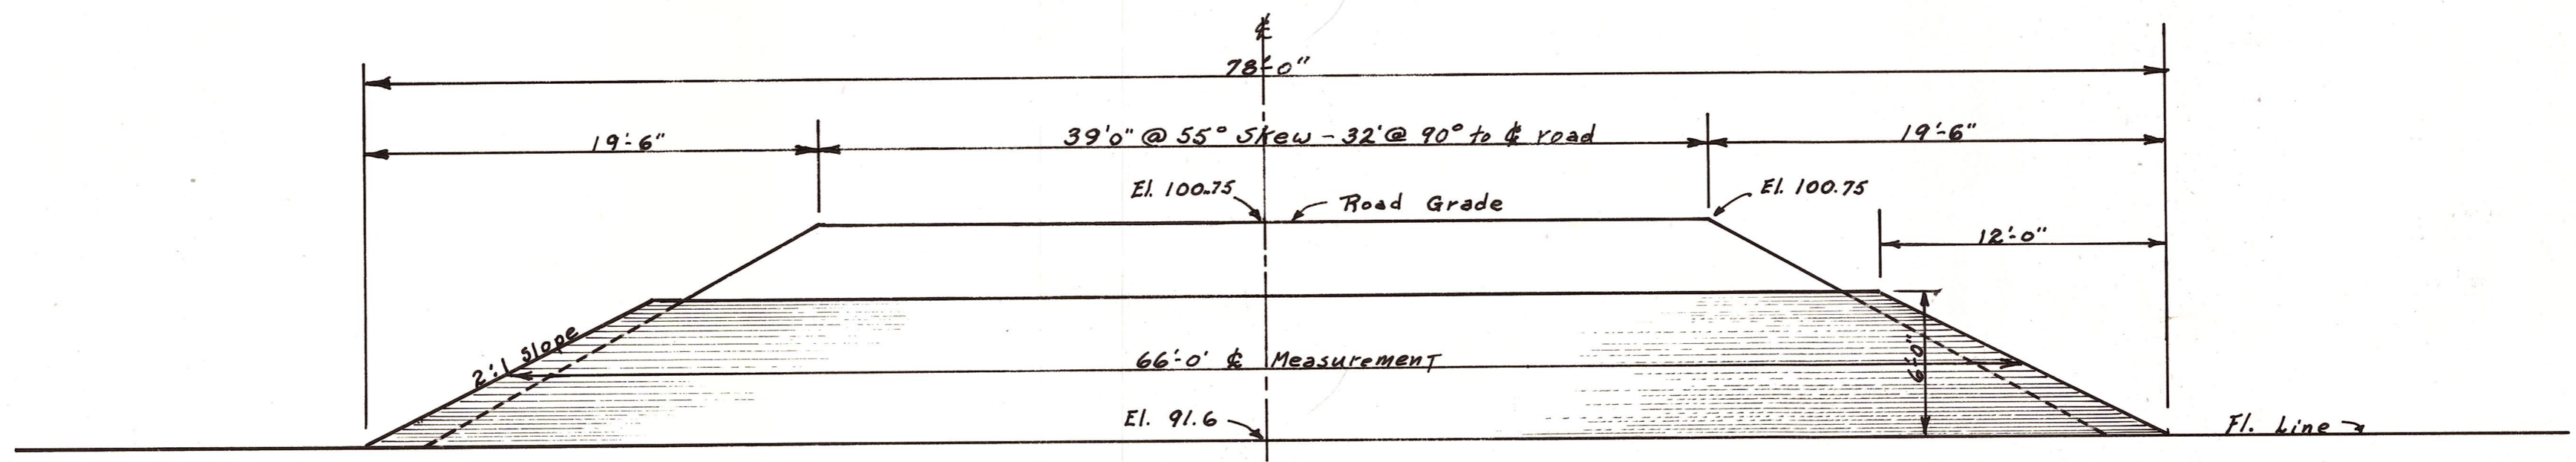 ℄
78'-0"
19'-6"
39'0" @ 55° Skew - 32' @ 90° to ℄ road
19'-6"
El. 100.75
Road Grade
El. 100.75
12'-0"
2:1 Slope
66'-0' ℄ Measurement
6'-0"
El. 91.6
Fl. Line